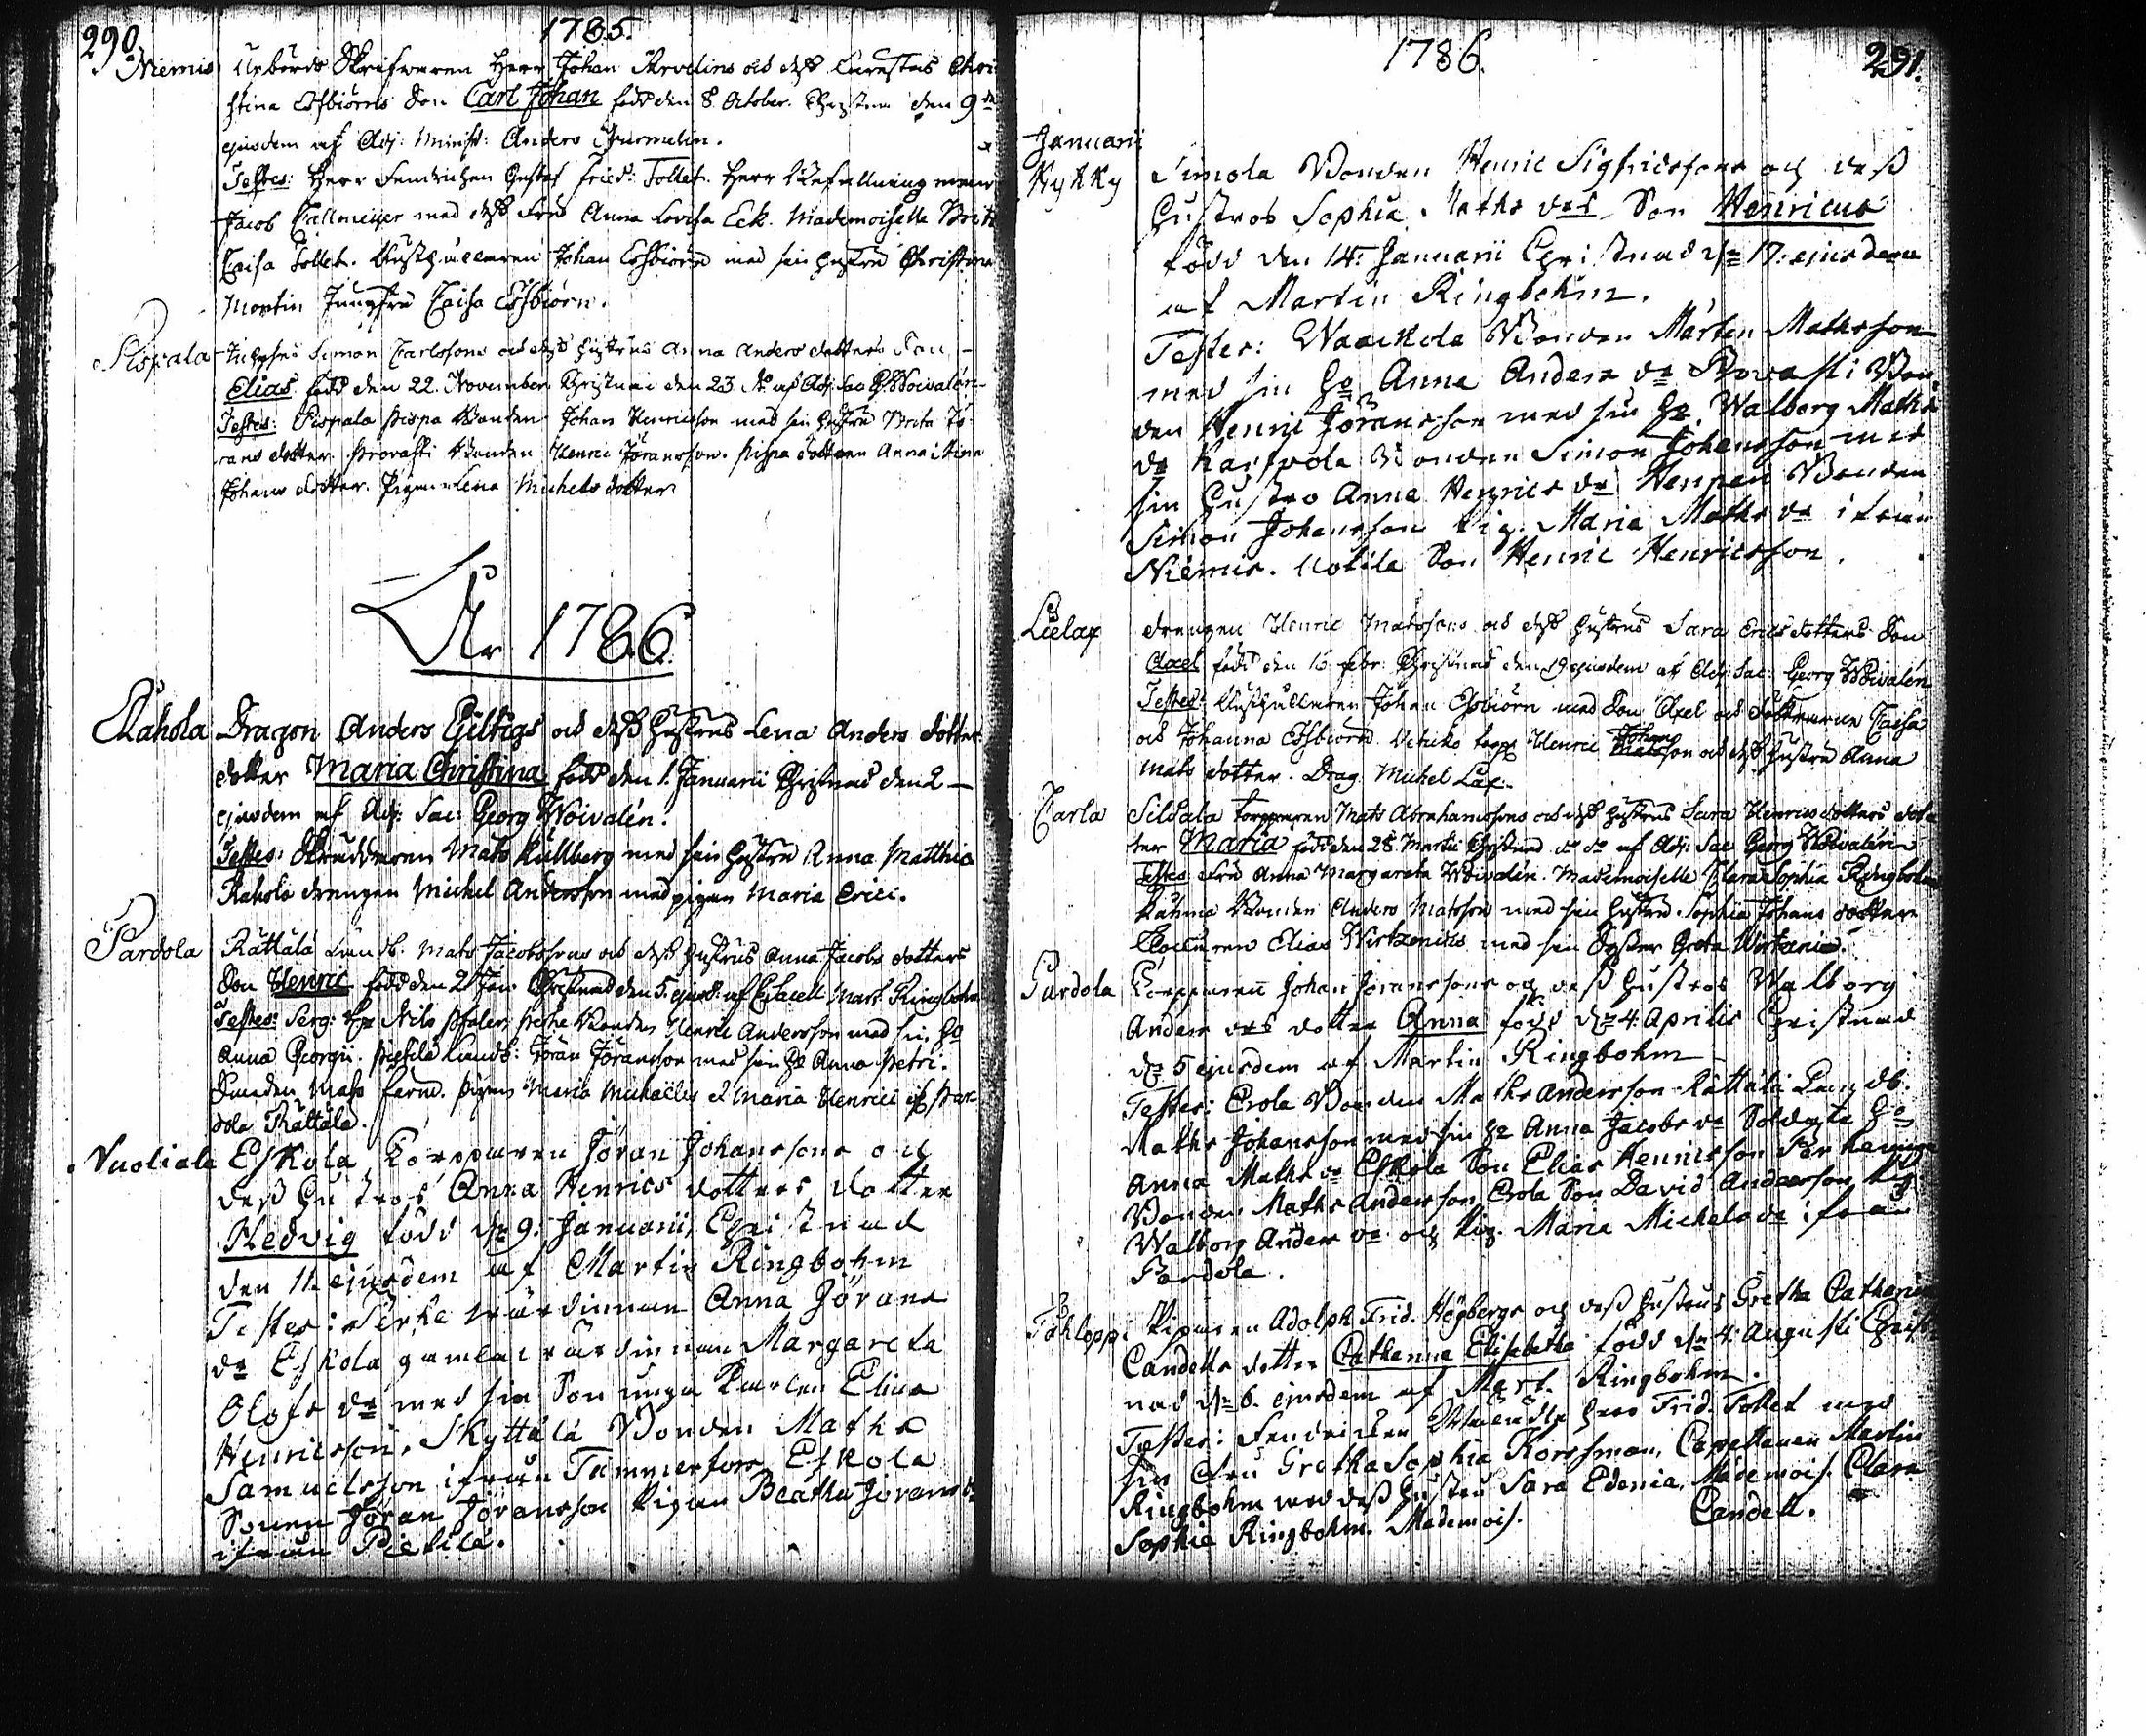 290
1785.
Niemis
Urbörds Skrifwaren Herr Johan Arvelins och dess Hustrus Chri-
stina Essbiörns Son Carl Johan född den 8 October. Christnn den 9de
ejusdem af Adj: Minist: Anders Gurmelin.
Testes: Herr Fendrichen Gustaf Fried: Tollet. Herr Befallningsman
Jacob Tallmeijer med dess Fru Anna Lovisa Eek. Mademoiselle Brit
Caisa Tollet. Johan Essbiörn med sin hustru Christina
Mortin Jungfru Caisa Essbiörn.
Pispala
Inhyses Simon Carlssons och dess hustrus Anna Anders dotters Son
Elias född den 22. November Christnn den 23 af Adj: Sac G. Woivalén
Testes: Pispala Pispa Bonden Johan Henricsson med sin hustru Brita Jö-
rans dotter. Provasti Bonden Henric Jöransson. Pispa dottren Anna Stina
Johans dotter. Pigan Lena Michels dotter
År 1786.
Rahola
Dragon Anders Giltigs och dess hustrus Lena Anders dotter
dotter Maria Christina född den 1. Januarii Christnad den 2
ejusdem af Adj: Sac: Georg Woivalén.
Testes: Skräddaren Mats Kullberg med sin hustru Anna Matthia
Rahola drengen Michel Andersson med pigan Maria Erici.
Pardola
Rättälä Landb. Mats Jacobssons och dess hustrus Anna Jacobs dotters
Son Henric född den 2 Jan Christnad den 5. ejusd: af Capell Mart Ringbohm
Testes: Serg: Nils Bonden Henric Andersson med sin H:o
Anna Georgii. Landb: Jöran Jöransson med sin H:o Anna Petri.
Mats Pigan Maria Michaëlis & Maria Henrici if Par-
dola Rättälä.
Vuoliala
Eskola Torpparen Jöran Johanssons och
dess hustrus Anna Henrics dotters dotter
Hedvig född dn 9. Januarii, Christnad
den 11. ejusdem af Martin Ringbohm
Testes: Perke wärdinnan Anna Jörans
dr Eskola gamla wärdinnan Margareta
Olofs dr med sin Son unga Karlen Elias
Henricsson, Skyttälä Bonden Maths
Samuelsson ifrån Tammerfors Eskola
Sonen Jöran Jöransson Pigan Beatha Jörans dr
ifrån Pietilä.
1786.
291.
Januarii
Kykky
Simola Bonden Henric Sigfridssons och dess
Hustros Sophia Maths drs Son Henricus
född den 14. Januarii Christnad dn 17. ejusdem
af Martin Ringbohm.
Testes: Waackola Bonden Mårten Mathsson
med sin H:o Anna Anders dr Provasti Bon-
den Henric Jöransson med sin H:o Walborg Maths
dr Bonden Simon Johansson med
sin Hustro Anna Henrics dr Henperi Bonden
Simon Johansson Pig. Maria Maths dr ifrån
Niemis. Uotila Son Henric Henricsson.
Lielax
Drengen Henric Matssons och dess hustrus Sara Erics dotters Son
Axel född den 16 Febr: Christnad den 19 ejusdem af Adj: Sac: Georg Woivalén
Testes: Johan Essbiörn med Son Axel och döttrarna Caisa
och Johanna Essbiörn. Henric Johansson och dess hustru Anna
Mats dotter. Drag. Michel Lax.
Tarla
Sildala torpparen Mats Abrahamssons och dess hustrus Sara Henrics dotters dot-
ter Maria född den 28 Martii Christnad af Adj: Sac Georg Woivalén
Testes Fru Anna Margareta Woivalén. Mademoiselle Clara Sophia Ringbohm
Bonden Anders Matsson med sin hustru Sophia Johans dotter
Elias Wirtzenius med sin Syster Greta Wirtzenia.
Pardola
Torpparen Johan Jöranssons och dess hustros Walborg
Anders drs dotter Anna född dn 4. Aprilis Christnad
dn 5 ejusdem af Martin Ringbohm
Testes: Erola Bonden Maths Andersson Rättälä Landb.
Maths Johansson med sin H:o Anna Jacobs dr Soldate H:o
Anna Maths dr Eskola Son Elias Henricsson
Bonden Maths Andersson, Erola Son David Andersson Pig
Walborg Anders dr och Pig. Maria Michels dr ifrån
Pardola.
Tahloppi
Pigaren Adolph Frid. Högbergs och dess hustrus Gretha Catharina
Candells dotter Catharina Elisabetha född dn 4. Augusti Christ-
nad dn 6. ejusdem af Mart. Ringbohm.
Testes: Fendricken Herr Frid. Tollet med
sin Fru Gretha Sophia Korsman, Capellanen Martin
Ringbohm med dess hustru Sara Edenia, Mademois. Clara
Sophia Ringbohm. Mademois. Candell.